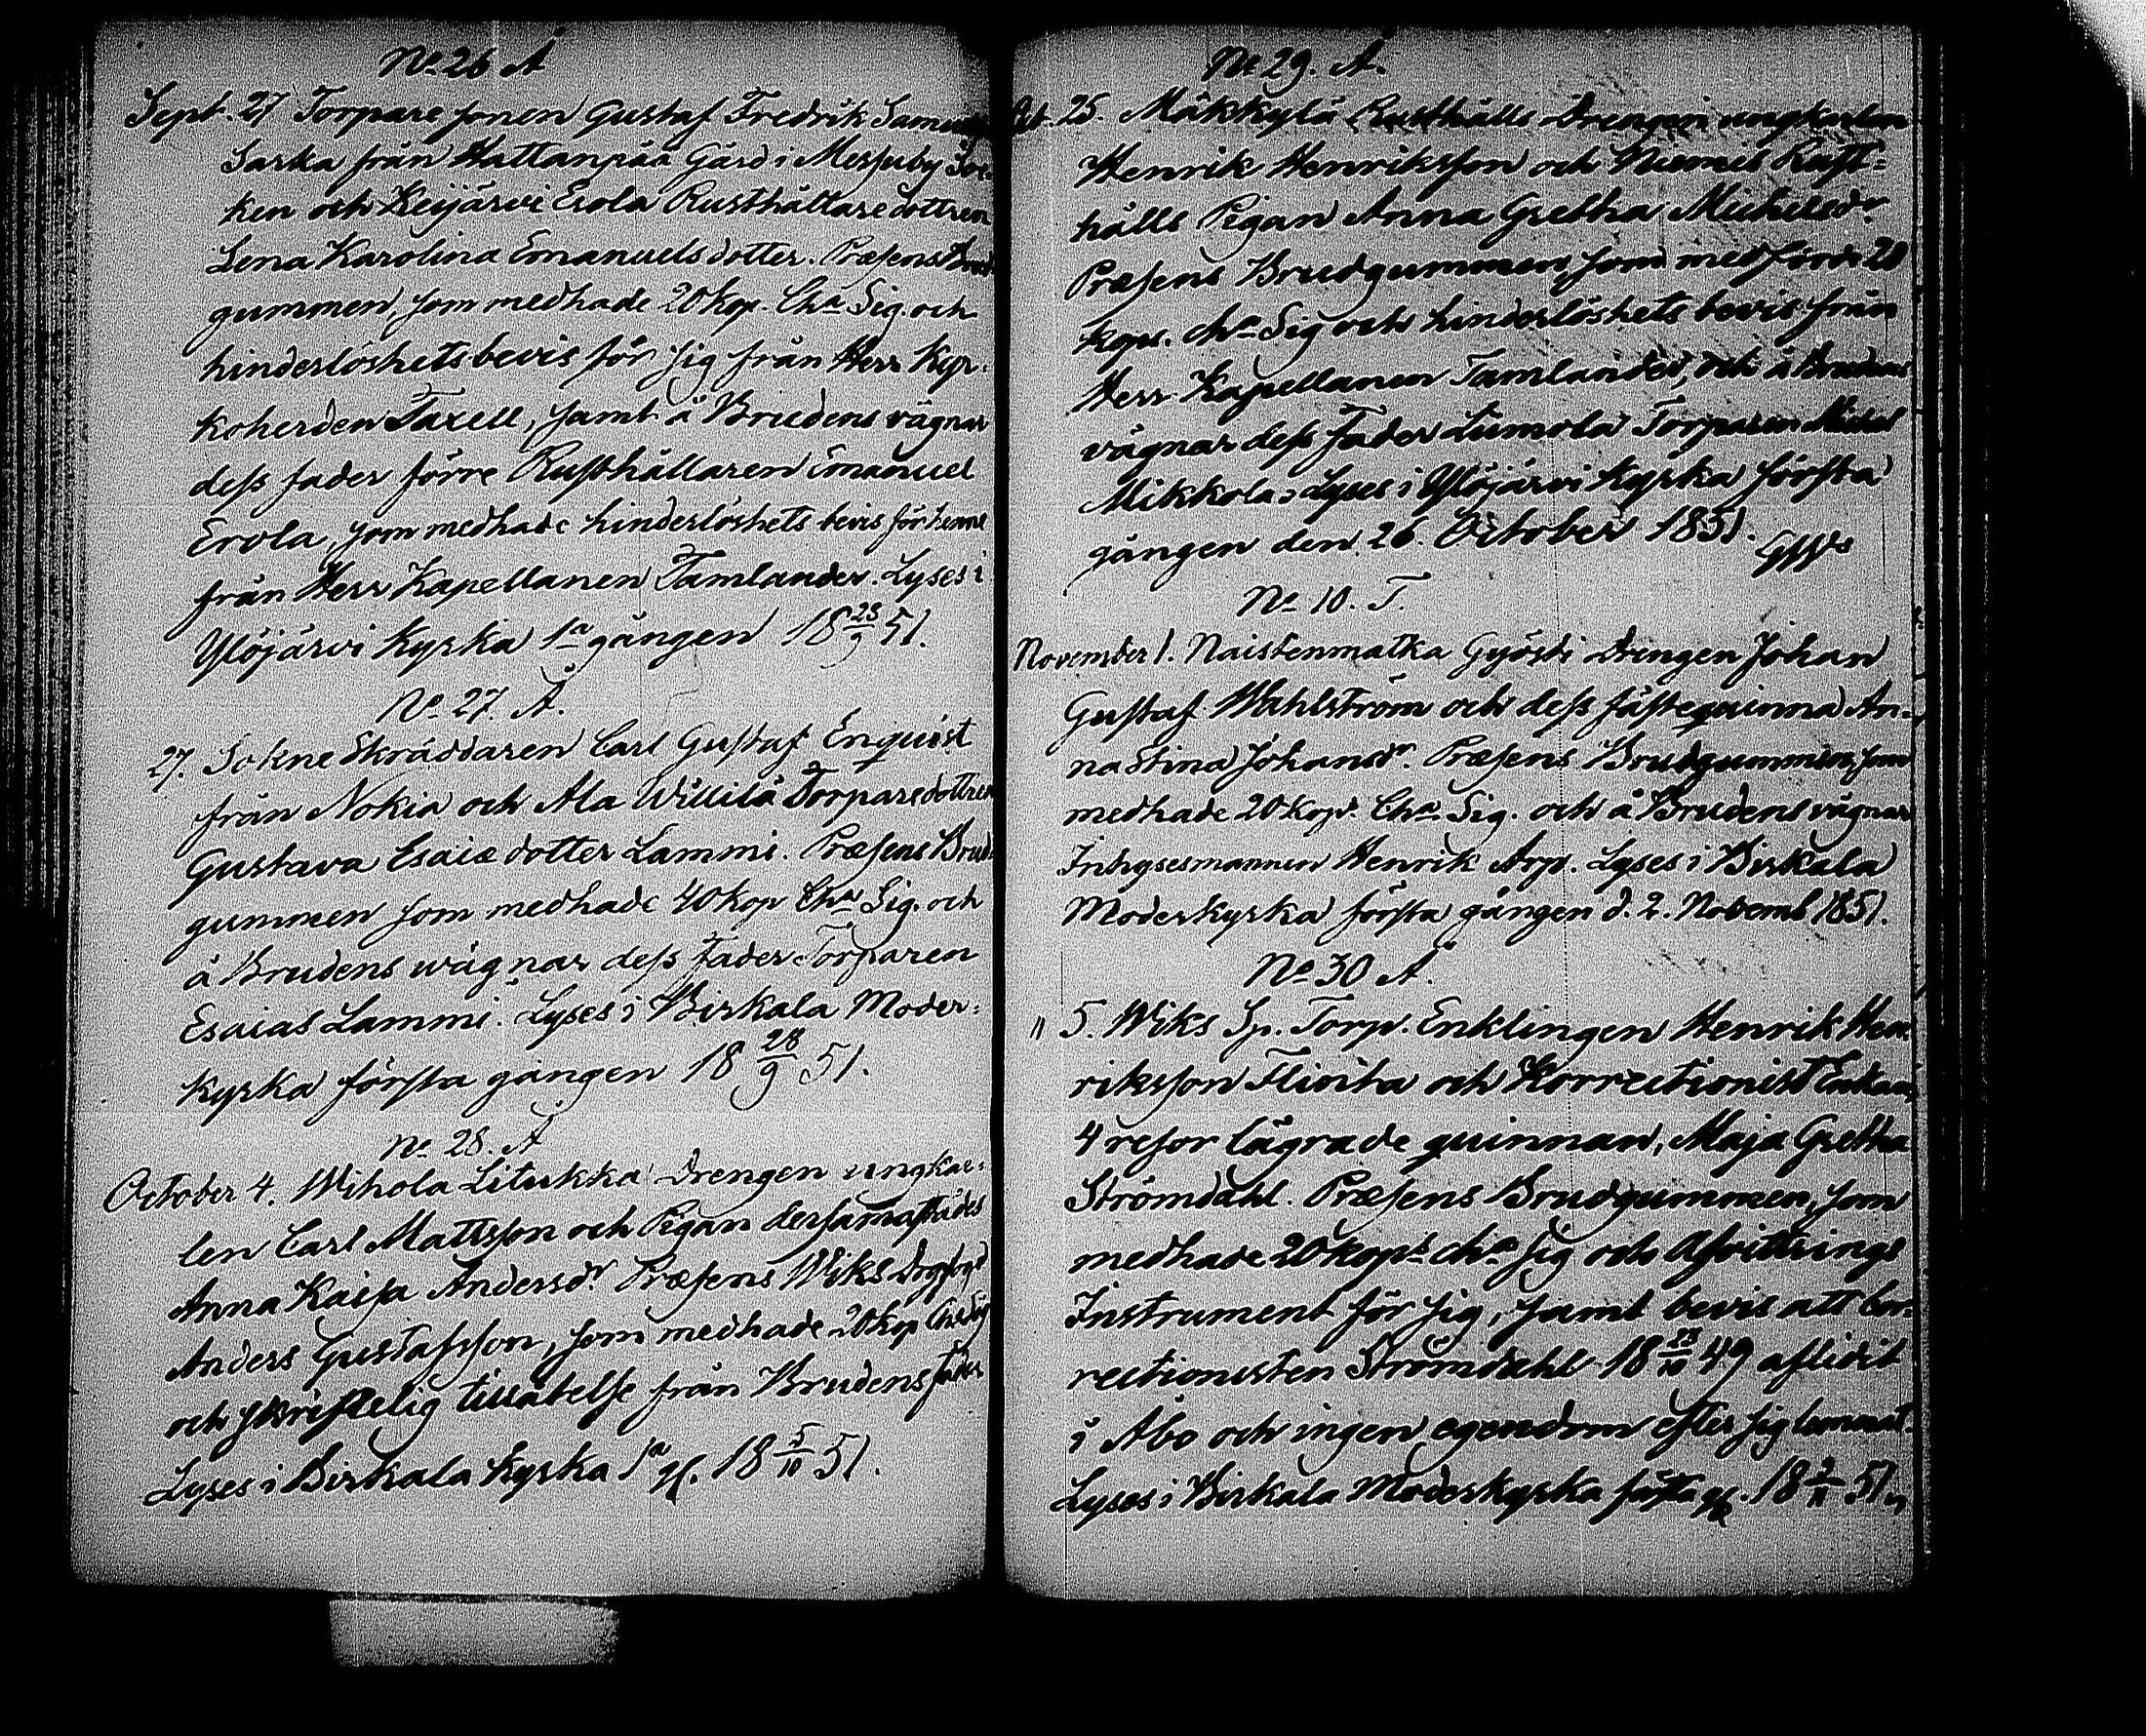 No. 26 Å
Sept. 27 Torpare sonen Gustaf Fredrik
Sarka från Hattanpää Gård i Messuby Soc-
ken och Keijärvi Erola Rusthållare dottren
Lena Karolina Emanuels dotter. Præsens Brud-
gummen, som medhade 20 kop. Cha Sig. och
hinderlöshets bevis för sig från Herr Kyr-
koherden Taxell, samt å Brudens vägnar
dess fader förre Rusthållaren Emanuel
Erola, som medhade hinderlöshets bevis för henne
från Herr Kapellanen Tamlander. Lyses i
Ylöjärvi Kyrka 1a gången 18 28/9 51.
No. 27. Å.
27. Sokne Skräddaren Carl Gustaf Enquist
från Nokia och Ala Willilä Torpare dottren
Gustava Esaiæ dotter Lammi. Præsens Brud-
gummen som medhade 40 kop Cha Sig. och
å Brudens wägnar dess fader Torparen
Esaias Lammi. Lyses i Birkala Moder-
kyrka första gången 18 28/9 51.
No. 28. Å
October 4. Wihola Litukka Drengen ungkar-
len Carl Mattsson och Pigan dersamastädes
Anna Kaisa Andersdr. Præsens Wiks
Anders Gustafsson, som medhade 20 kop Cha Sig
och skriftelig tillåtelse från Brudens fader
Lyses i Birkala Kyrka 1a gg. 18 5/10 51.
No 29. Å.
Oct. 25. Mäkkylä Rusthålls Drengen ungkarlen
Henrik Henriksson och Niemis Rust-
hålls Pigan Anna Gretha Michelsdr.
Præsens Brudgummen, som 20
kop. cha Sig och hinderlöshets bevis från
Herr Kapellanen Tamlander, och å Brudens
vägnar dess fader Liimola Torparen Michel
Mikkola. Lyses i Ylöjärvi Kyrka första
gången den 26. October 1851.
No. 10. T.
November 1. Naistenmatka Gyösti Drengen Johan
Gustaf Wahlström och dess fästeqvinna An-
na Stina Johansdr. Præsens Brudgummen, som
medhade 20 kop. Cha. Sig. och å Brudens vägnar
Inhysesmannen Henrik Arp. Lyses i Birkala
Moderkyrka första gången d. 2. Novemb 1851.
No 30 Å.
" 5. Wiks Sp. Torp. Enklingen Henrik Hen-
riksson och Korrectionist Enkan,
4 resor lägrade quinnan, Maja Gretha
Strömdahl. Præsens Brudgummen, som
medhade 20 kops cha Sig och Afvittrings
Instrument för sig, samt bevis att Cor-
rectionisten Strömdahl 18 23/10 49 aflidit
i Åbo och ingen egendom efter sig lemnat.
Lyses i Birkala Moderkyrka första gg. 18 9/11 51.